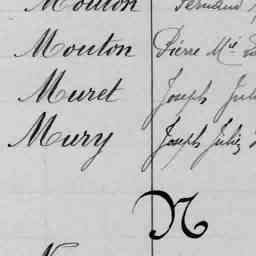 Mouton Fernand
Mouton Pierre Mie
Muret Joseph Juli
Mury Joseph Jules
N